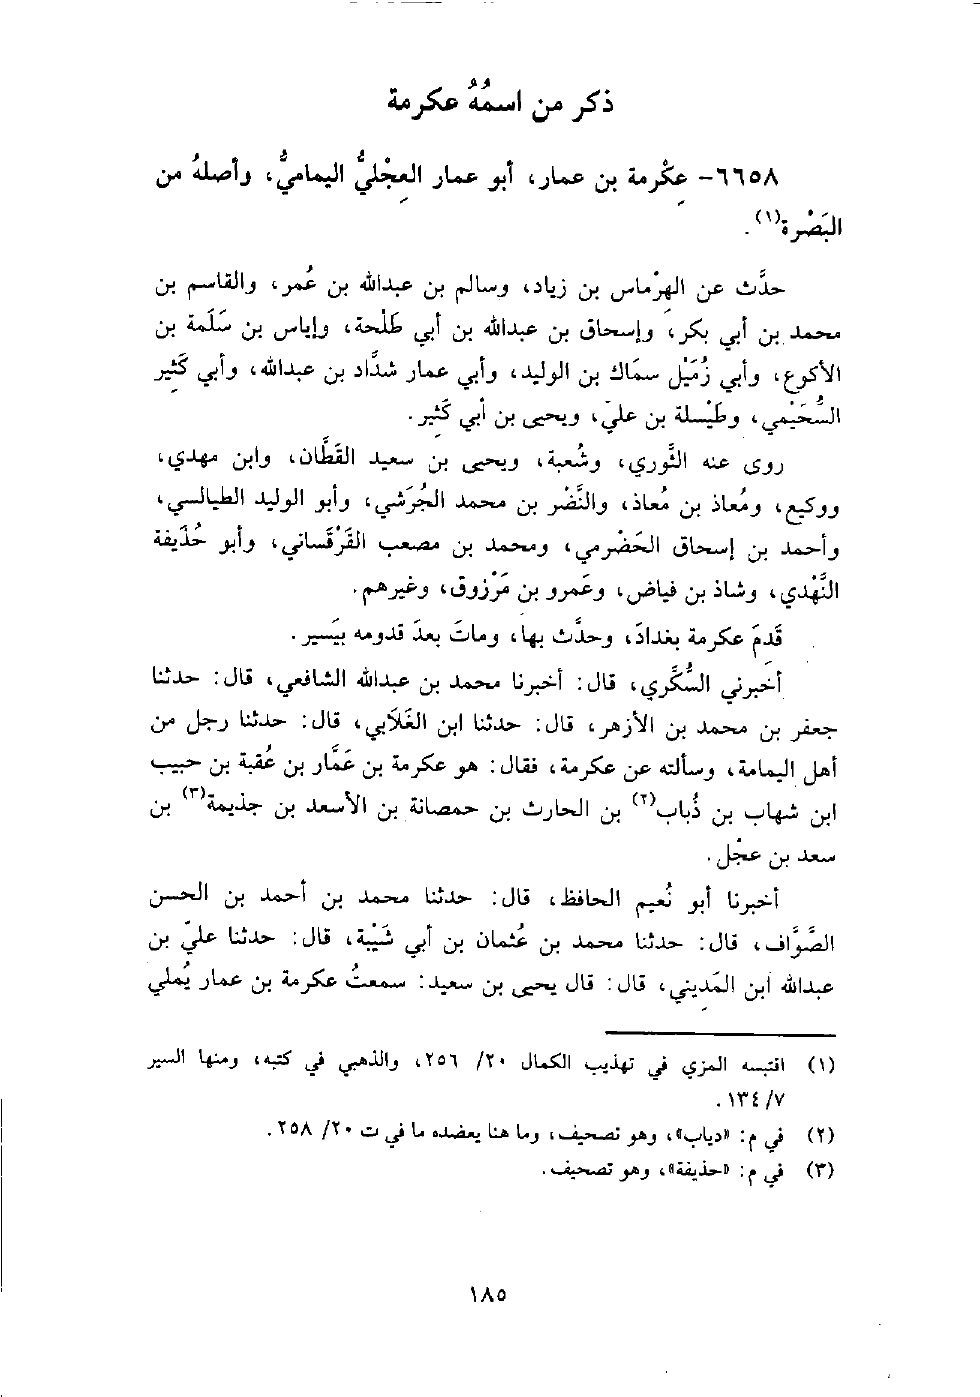 ذكر من اسمُهُ عكرمة
٦٦٥٨- عِكْرمة بن عمار، أبو عمار العِجْليُّ اليماميُّ، وأصلهُ من
البَصْرة(١).
حدَّث عن الهِرْماس بن زياد، وسالم بن عبدالله بن عُمر، والقاسم بن
محمد بن أبي بكر، وإسحاق بن عبدالله بن أبي طَلْحة، وإياس بن سَلَمة بن
الأكوع، وأبي زُمَيْل سماك بن الوليد، وأبي عمار شدَّاد بن عبدالله، وأبي كَثِير
السُّحَيْمي، وطَيْسلة بن عليّ، ويحيى بن أبي كَثِير.
روى عنه الثَّوري، وشُعبة، ويحيى بن سعيد القَطَّان، وابن مهدي،
ووكيع، ومُعاذ بن مُعاذ، والنَّضْر بن محمد الجُرَشي، وأبو الوليد الطيالسي،
وأحمد بن إسحاق الحَضْرمي، ومحمد بن مصعب القَرْقَساني، وأبو حُذَيفة
النَّهْدي، وشاذ بن فياض، وعَمرو بن مَرْزوق، وغيرهم.
قَدِمَ عكرمة بغدادَ، وحدَّث بها، وماتَ بعدَ قدومه بيَسير.
أخبرني السُّكَّري، قال: أخبرنا محمد بن عبدالله الشافعي، قال: حدثنا
جعفر بن محمد بن الأزهر، قال: حدثنا ابن الغَلَابي، قال: حدثنا رجل من
أهل اليمامة، وسألته عن عكرمة، فقال: هو عكرمة بن عَمَّار بن عُقبة بن حبيب
ابن شهاب بن ذُباب(٢) بن الحارث بن حمصانة بن الأسعد بن جذيمة(٣) بن
سعد بن عجْل.
أخبرنا أبو نُعيم الحافظ، قال: حدثنا محمد بن أحمد بن الحسن
الصَّوَّاف، قال: حدثنا محمد بن عُثمان بن أبي شَيْبة، قال: حدثنا عليّ بن
عبدالله ابن المَدِيني، قال: قال يحيى بن سعيد: سمعتُ عكرمة بن عمار يُملي
(١) اقتبسه المزي في تهذيب الكمال ٢٠/ ٢٥٦، والذهبي في كتبه، ومنها السير
٧/ ١٣٤.
(٢) في م: «دياب»، وهو تصحيف، وما هنا يعضده ما في ت ٢٠/ ٢٥٨.
(٣) في م: «حذيفة»، وهو تصحيف.
١٨٥